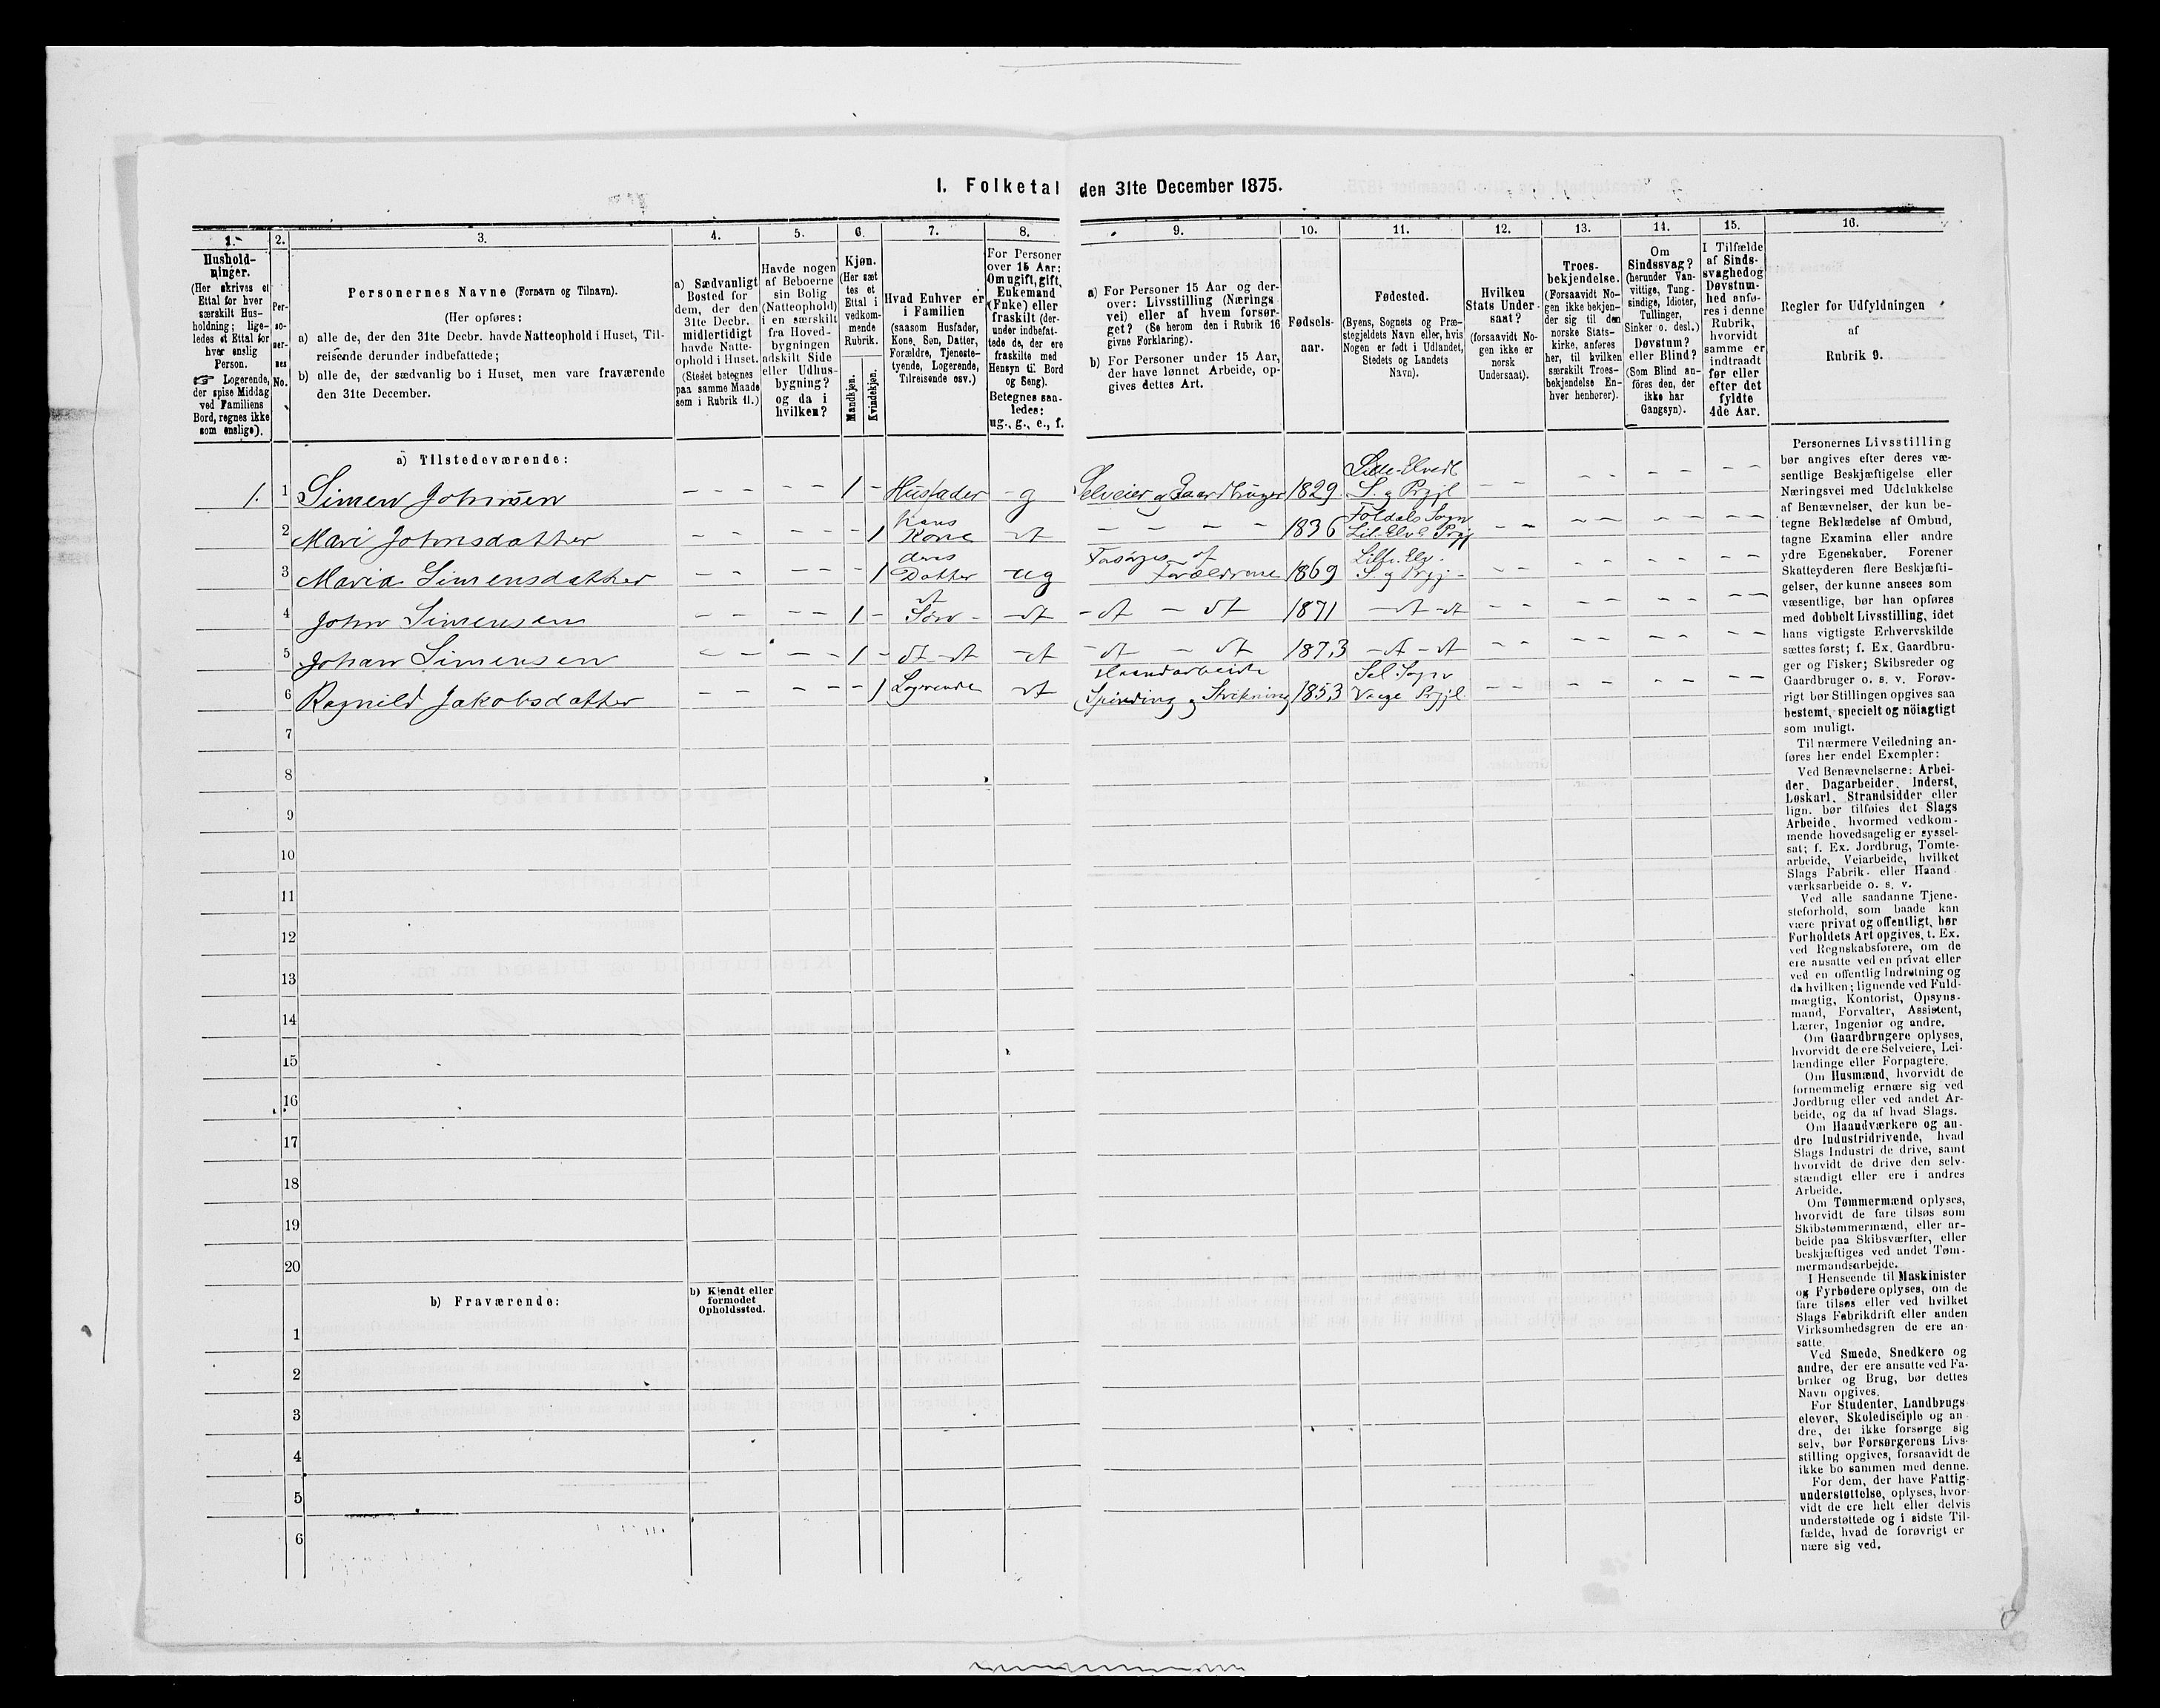 I. Folketal den 31te December 1875.
1. 2. 3. 4. 5. 6. 7. 8. 9. 10. 11. 12. 13. 14. 15. 16.
Hushold-
ninger.
(Her skrives et
Ettal for hver
særskilt Hus-
holdning; lige-
ledes et Ettal for
hver enslig
Person.
☞ Logerende,
der spise Middag
ved Familiens
Bord, regnes ikke
som enslige).
Per-
so-
ner-
nes
No.
Personernes Navne (Fornavn og Tilnavn).
(Her opføres:
a) alle de, der den 31te Decbr. havde Natteophold i Huset, Til-
reisende derunder indbefattede;
b) alle de, der sædvanlig bo i Huset, men vare fraværende
den 31te December.
a) Sædvanligt
Bosted for
dem, der den
31te Decbr.
midlertidigt
havde Natte-
ophold i Huset.
(Stedet betegnes
paa samme Maade
som i Rubrik 11.)
Havde nogen
af Beboerne
sin Bolig
(Natteophold)
i en særskilt
fra Hoved-
bygningen
adskilt Side
eller Udhus-
bygning?
og da i
hvilken?
Kjøn.
(Her sæt
tes et
Ettal i
vedkom-
mende
Rubrik.
Mandkjøn.
Kvindekjøn.
Hvad Enhver er
i Familien
(saasom Husfader,
Kone, Søn, Datter,
Forældre, Tjeneste-
tyende, Logerende,
Tilreisende osv.)
For Personer
over 15 Aar:
Om ugift, gift,
Enkemand
(Enke) eller
fraskilt (der-
under indbefat-
tede de, der ere
fraskilte med
Hensyn til Bord
og Seng).
Betegnes saa-
ledes:
ug., g., e., f.
a) For Personer 15 Aar og der-
over: Livsstilling (Nærings
vei) eller af hvem forsør-
get? (Se herom den i Rubrik 16
givne Forklaring).
b) For Personer under 15 Aar,
der have lønnet Arbeide, op-
gives dettes Art.
Fødsels-
aar.
Fødested.
(Byens, Sognets og Præ-
stegjeldets Navn eller, hvis
Nogen er født i Udlandet,
Stedets og Landets
Navn).
Hvilken
Stats Under-
saat?
(forsaavidt No-
gen ikke er
norsk
Undersaat).
Troes-
bekjendelse.
(Forsaavidt No-
gen ikke bekjen-
der sig til den
norske Stats-
kirke, anføres
her, til hvilken
særskilt Troes-
bekjendelse En-
hver henhører).
Om
Sindssvag?
(herunder Van-
vittige, Tung-
sindige, Idioter,
Sinker o. desl.)
Døvstum?
eller Blind?
(Som Blind an-
føres den, der
ikke har
Gangsyn).
I Tilfælde
af Sinds-
svaghedog
Døvstum-
hed anfø-
res i denne
Rubrik,
hvorvidt
samme er
indtraadt
før eller
efter det
fyldte
4de Aar.
Regler for Udfyldningen
af
Rubrik 9.
a) Tilstedeværende:
Lille-Elvedl
1. 1 Simen Johnsen – – – – – 1 – Husfader – g Selveier og Gaardbruger 1829 S. og Prgjl – – – – – – – –
hans Foldals Sogn
2 Mari Johnsdatter – – – – – 1 Kone dt – – – – 1836 Lil. Elvd Prgj – – – – – – – –
deres Forsørges af Lille. Elv.
3 Maria Simensdatter – – – – 1 Datter – ug Forældrene 1869 S. og Prgj – – – – – – – –
dt
4 John Simensen – – – – 1 – Søn – – dt – dt – dt 1871 – dt – dt – – – – – – – –
5 Johan Simensen – – – – 1 – dt – dt – dt – dt – dt 1873 – dt – dt – – – – – – – –
Haandarbeide Sel Sogn
6 Ragnild Jakobsdatter – – – – – 1 Logerende dt Spinding og Strikning 1853 Vaage Prgjl – – – – – – – –
7
8
9
10
11
12
13
14
15
16
17
18
19
20
b) Fraværende:
b) Kjendt eller
formodet
Opholdssted.
1
2
3
4
5
6
Personernes Livsstilling
bør angives efter deres væ-
sentlige Beskjæftigelse eller
Næringsvei med Udelukkelse
af Benævnelser, der kun be-
tegne Beklædelse af Ombud,
tagne Examina eller andre
ydre Egenskaber. Forener
Skatteyderen flere Beskjæfti-
gelser, der kunne ansees som
væsentlige, bør han opføres
med dobbelt Livsstilling, idet
hans vigtigste Erhvervskilde
sættes først; f. Ex. Gaardbru-
ger og Fisker; Skibsreder og
Gaardbruger o. s. v. Forøv-
rigt bør Stillingen opgives saa
bestemt, specielt og nöiagtigt
som muligt.
Til nærmere Veiledning an-
føres her endel Exempler:
Ved Benævnelserne: Arbei-
der, Dagarbeider, Inderst,
Løskarl, Strandsidder eller
lign. bør tilføies det Slags
Arbeide, hvormed vedkom-
mende hovedsagelig er syssel-
sat; f. Ex. Jordbrug, Tomte-
arbeide, Veiarbeide, hvilket
Slags Fabrik- eller Haand-
værksarbeide o. s. v.
Ved alle saadanne Tjene-
steforhold, som baade kan
være privat og offentligt, bør
Forholdets Art opgives, t. Ex.
ved Regnskabsførere, om de
ere ansatte ved en privat eller
ved en offentlig Indretning og
da hvilken; lignende ved Fuld-
mægtig, Kontorist, Opsyns-
mand, Forvalter, Assistent,
Lærer, Ingeniør og andre.
Om Gaardbrugere oplyses,
hvorvidt de ere Selveiere, Lei-
lændinge eller Forpagtere.
Om Husmænd, hvorvidt de
fornemmelig ernære sig ved
Jordbrug eller ved andet Ar-
beide, og da af hvad Slags.
Om Haandværkere og an-
dre Industridrivende, hvad
Slags Industri de drive, samt
hvorvidt de drive den selv-
stændigt eller ere i andres
Arbeide.
Om Tømmermænd oplyses,
hvorvidt de fare tilsøs som
Skibstømmermænd, eller ar-
beide paa Skibsværfter, eller
beskjæftiges ved andet Tøm-
mermandsarbejde.
I Henseende til Maskinister
og Fyrbødere oplyses, om de
fare tilsøs eller ved hvilket
Slags Fabrikdrift eller anden
Virksomhedsgren de ere an-
satte.
Ved Smede, Snedkere og
andre, der ere ansatte ved Fa-
briker og Brug, bør dettes
Navn opgives.
For Studenter, Landbrugs-
elever, Skoledisciple og an-
dre, der ikke forsørge sig
selv, bør Forsørgerens Livs-
stilling opgives, forsaavidt de
ikke bo sammen med denne.
For dem, der have Fattig-
understøttelse, oplyses, hvor-
vidt de ere helt eller delvis
understøttede og i sidste Til-
fælde, hvad de forøvrigt er
nære sig ved.